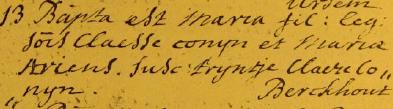 Ursem
13 Bapta est Maria fil: leg:
Jois Claesse Conyn et Maria
Ariens. Susc: Tryntje Claeze Co„
nyn. Berckhout